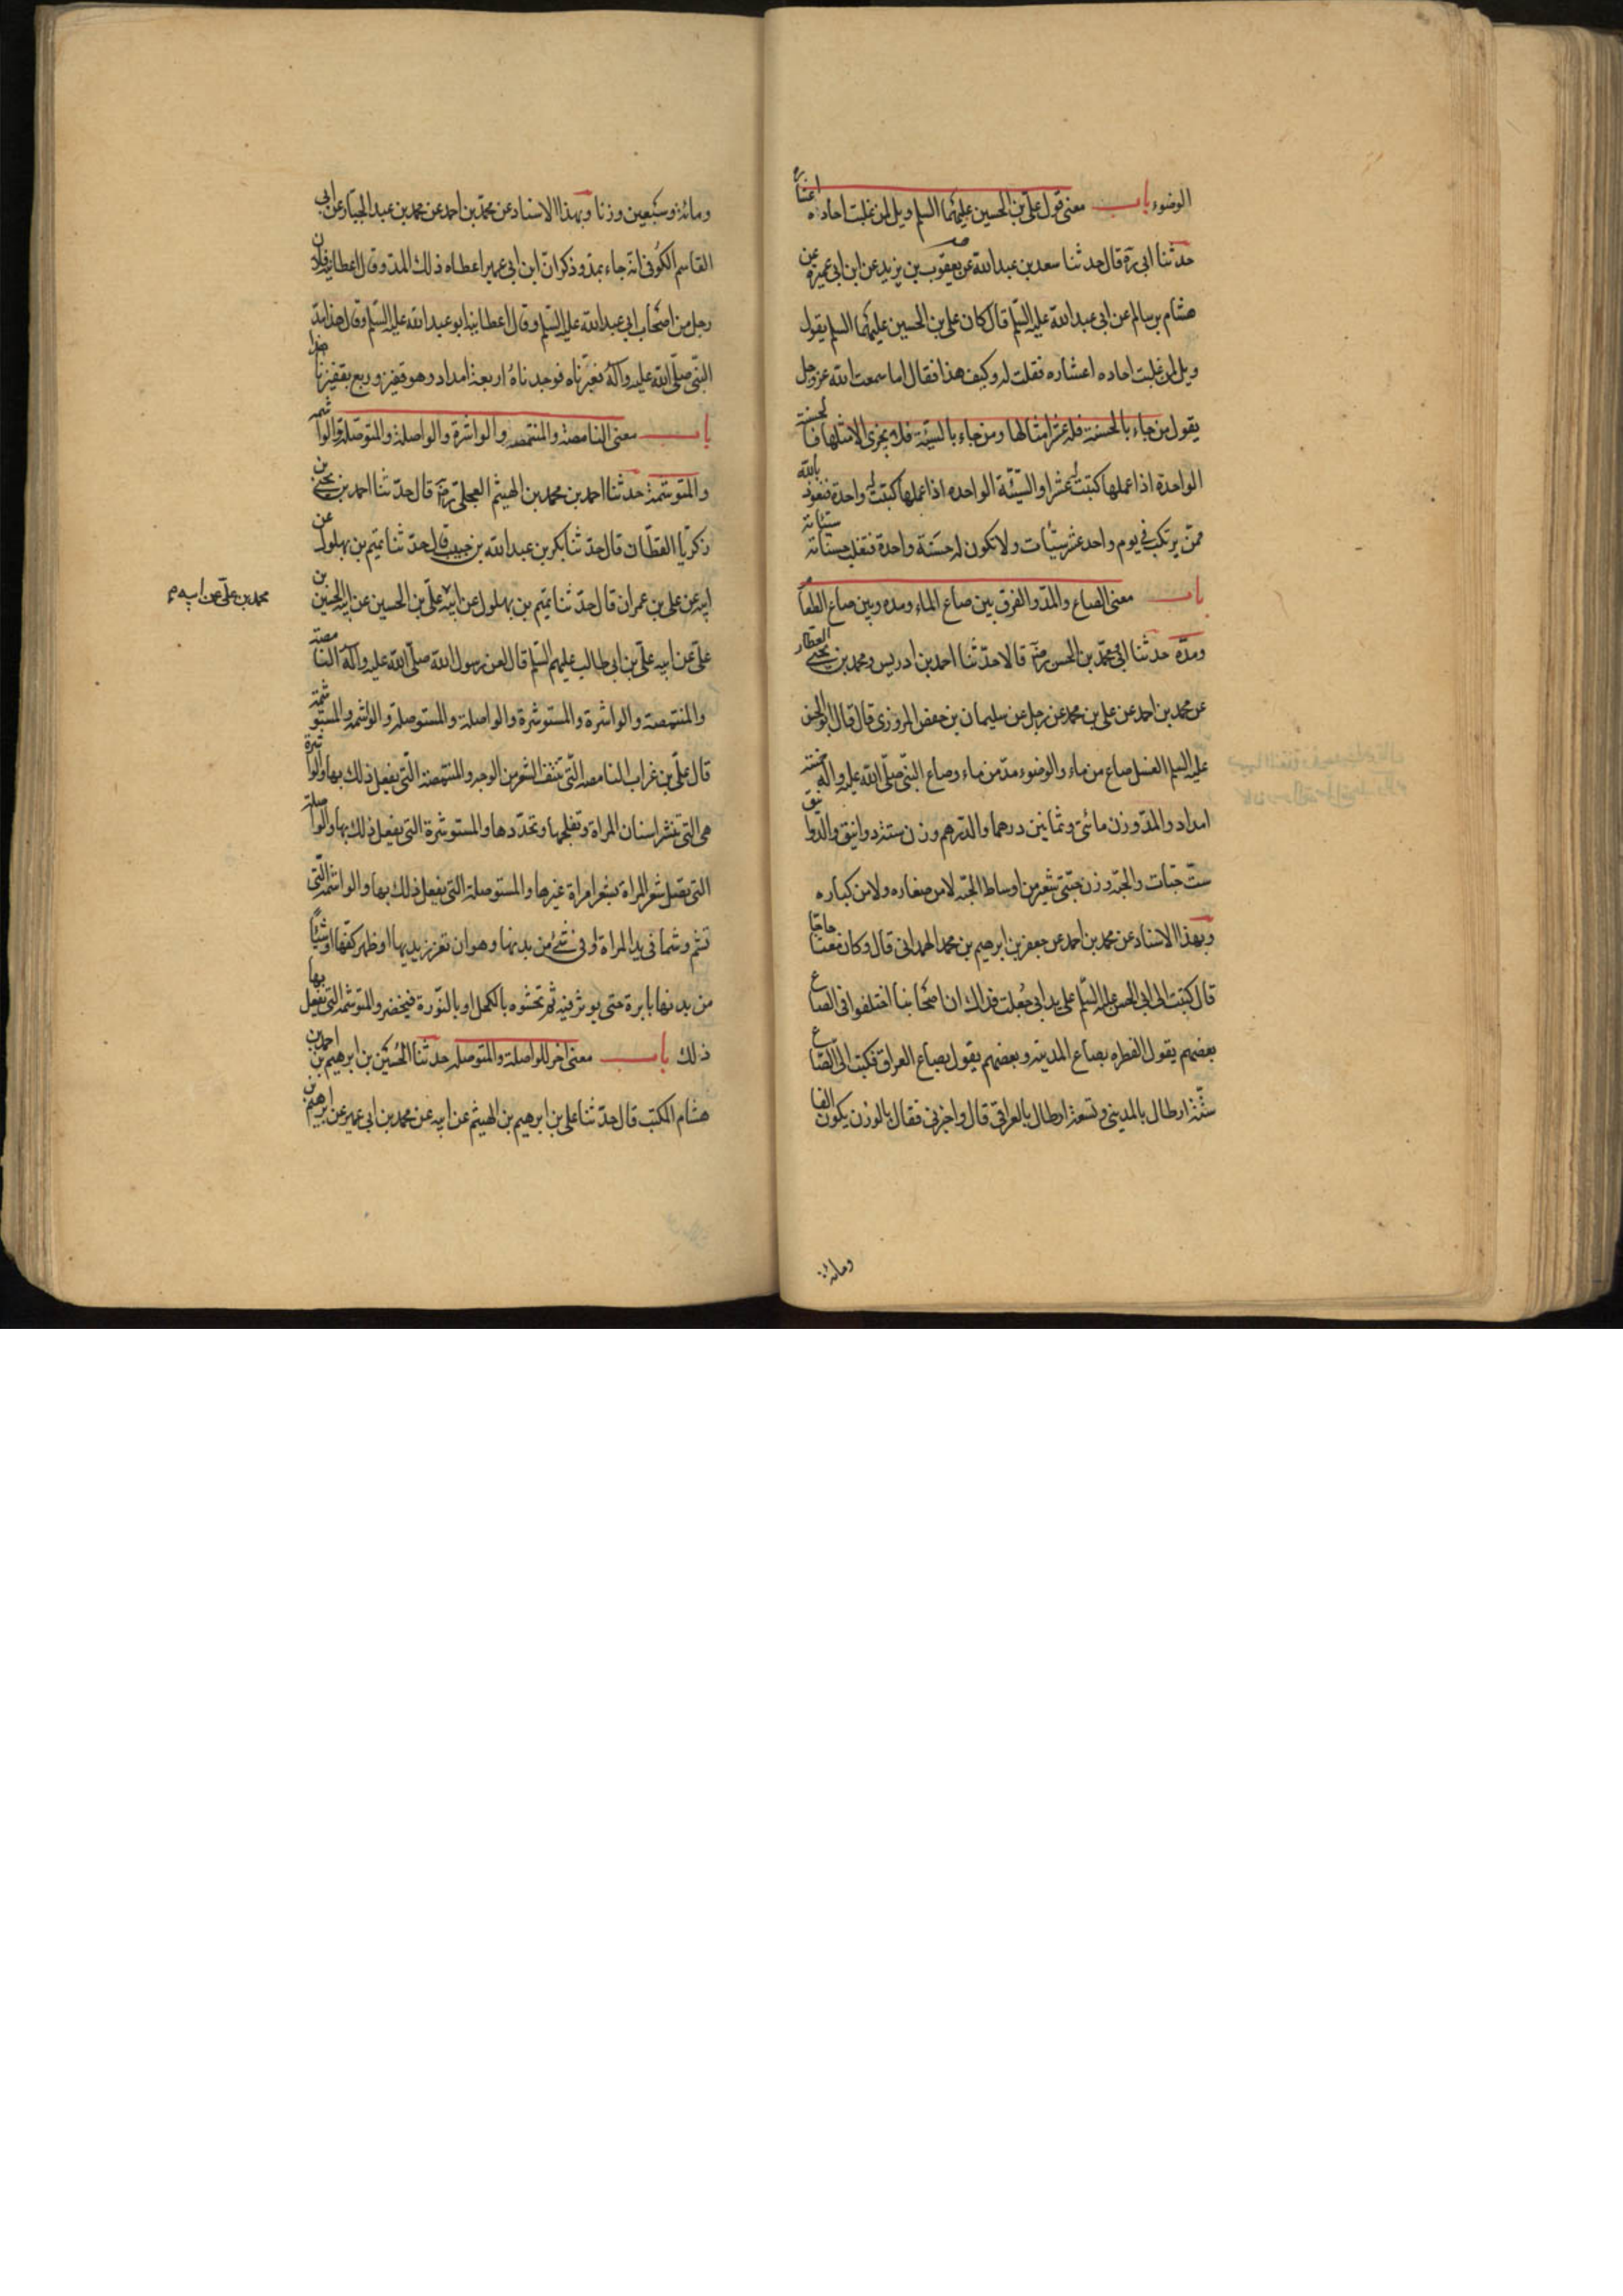 الوضوء باب معنى قول علي بن الحسين عليهما السلم ويل لمن غلبت احاده اعشاره
حدثنا ابي ره قال حدثنا سعد بن عبد الله عن يعقوب بن يزيد عن ابن ابي عمير عن
هشام بن سالم عن ابي عبد الله عليه السلم قال كان علي بن الحسين عليهما السلم يقول
ويل لمن غلبت احاده اعشاره فقلت له وكيف هذا فقال اما سمعت الله عز وجل
يقول من جاء بالحسنة فله عشر امثالها ومن جاء بالسيئة فلا يجزى الا مثلها فالحسنة
الواحدة اذا عملها كتبت له عشرا والسيئة الواحده اذا عملها كتبت له واحدة فنعوذ بالله
ممن يرتكب في يوم واحد عشر سيئات ولا تكون له حسنة واحدة فتغلب حسناته سيئاته
باب معنى الصاع والمد والفرق بين صاع الماء ومده وبين صاع الطعام
ومده حدثنا ابي ومحمد بن الحسن رحمه قالا حدثنا احمد بن ادريس ومحمد بن يحيى العطار
عن محمد بن احمد عن علي بن محمد عن رجل عن سليمان بن حفص المروزي قال قال ابو الحسن
عليه السلم الغسل صاع من ماء والوضوء مد من ماء وصاع النبي صلى الله عليه واله خمسة
امداد والمد وزن مائتي وثمانين درهما والدرهم وزن ستة دوانيق والدوانيق
ست حبات والحبة وزن حبتي شعير من اوساط الحبه لا من صغاره ولا من كباره
وبهذا الاسناد عن محمد بن احمد عن جعفر بن ابرهيم بن محمد الهمداني قال وكان معنا حاجا
قال كتبت الى ابي الحسن عليه السلم على يد ابي جعلت فداك ان اصحابنا اختلفوا في الصاع
بعضهم يقول الفطره بصاع المدينه وبعضهم يقول بصاع العراق فكتب الي الصاع
ستة ارطال بالمديني وتسعة ارطال بالعراقي قال واخبرني فقال بالوزن يكون الفا
ومائة
ومائة وسبعين وزنا وبهذا الاسناد عن محمد بن احمد عن محمد بن عبد الجبار عن ابي
القاسم الكوفي انه جاء بمد وذكر ان ابن ابي عمير اعطاه ذلك المد وقال اعطانيه فلان
رجل من اصحاب ابي عبد الله عليه السلم وقال اعطانيه ابو عبد الله عليه السلم وقال هذا مد
النبي صلى الله عليه واله فعيرناه فوجدناه اربعة امداد وهو قفيز وربع بقفيزنا هذا
باب معنى النامصة والمنتمصه والواشرة والواصلة والمتوصلة والواشمه
والمتوشمة حدثنا احمد بن محمد بن الهيثم العجلي رحمه قال حدثنا احمد بن يحيى بن
زكريا القطان قال حدثنا بكر بن عبد الله بن حبيب قال حدثنا تميم بن بهلول عن
ابيه عن علي بن عمران قال حدثنا تميم بن بهلول عن ابيه علي بن الحسين عن ابيه الحسين بن
محمد بن علي عن ابيه
علي عن ابيه علي بن ابي طالب عليهم السلم قال لعن رسول الله صلى الله عليه واله النامصة
والمنتمصة والواشرة والمستوشرة والواصلة والمستوصلة والواشمه والمستوشمة
قال علي بن غراب النامصه التي تنتف الشعر من الوجه والمنتمصة التي يفعل ذلك بها والواشرة
هي التي تنشر اسنان المراة وتفلجها وتحددها والمستوشرة التي يفعل ذلك بها والواصلة
التي تصل شعر المراة بشعر امراة غيرها والمستوصلة التي يفعل ذلك بها والواشمه التي
تشم وشما في يد المراة او في شئ من بدنها وهو ان تغرز يديها او ظهر كفها او شيئا
من بدنها بابرة حتى يوثر فيه ثم تحشوه بالكحل او بالنورة فيخضر والمتوشمه التي يفعل بها
ذلك باب معنى اخر للواصلة والمتوصله حدثنا الحسين بن ابرهيم بن احمد بن
هشام المكتب قال حدثنا علي بن ابرهيم بن الهيثم عن ابيه عن محمد بن ابي عمير عن ابرهيم بن